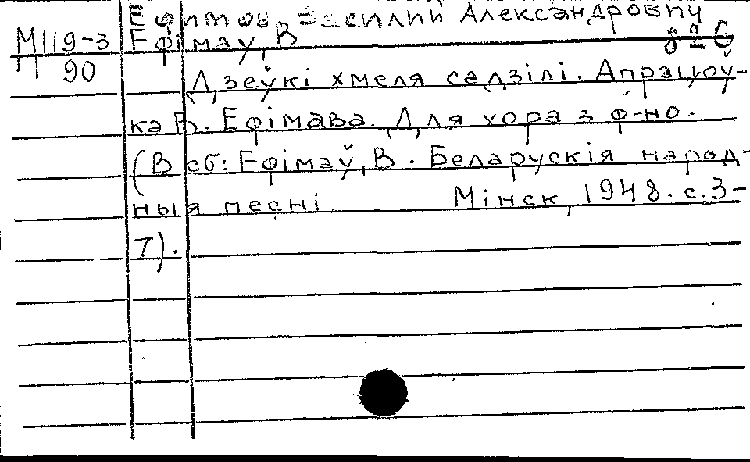 Ефимов, Василий Александрович
М119-3 Ефімаў, В
90 Дзеўкі хмеля садзілі. Апрацоў-
ка В. Ефімава. Для хора з ф-но.
(В сб: Ефімаў, В. Беларускія народ-
ныя песні Мінск, 1948. с.3-
7).